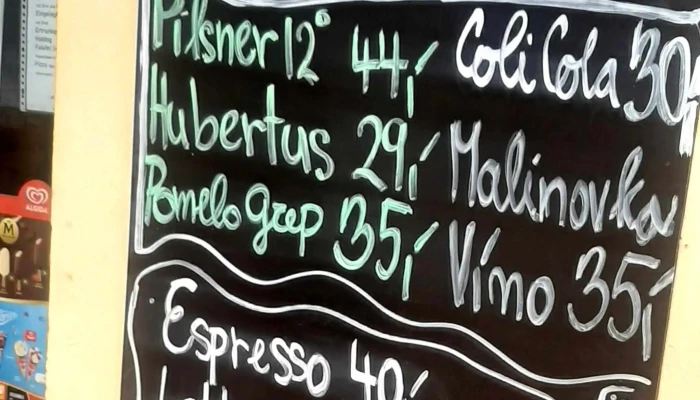 Pilsner 12° 44,-
Hubertus 29,-
Pomelo grep 35,-
Coli Cola 30,
Malinovka
Víno 35,-
Espresso 40,-
ALGIDA
M